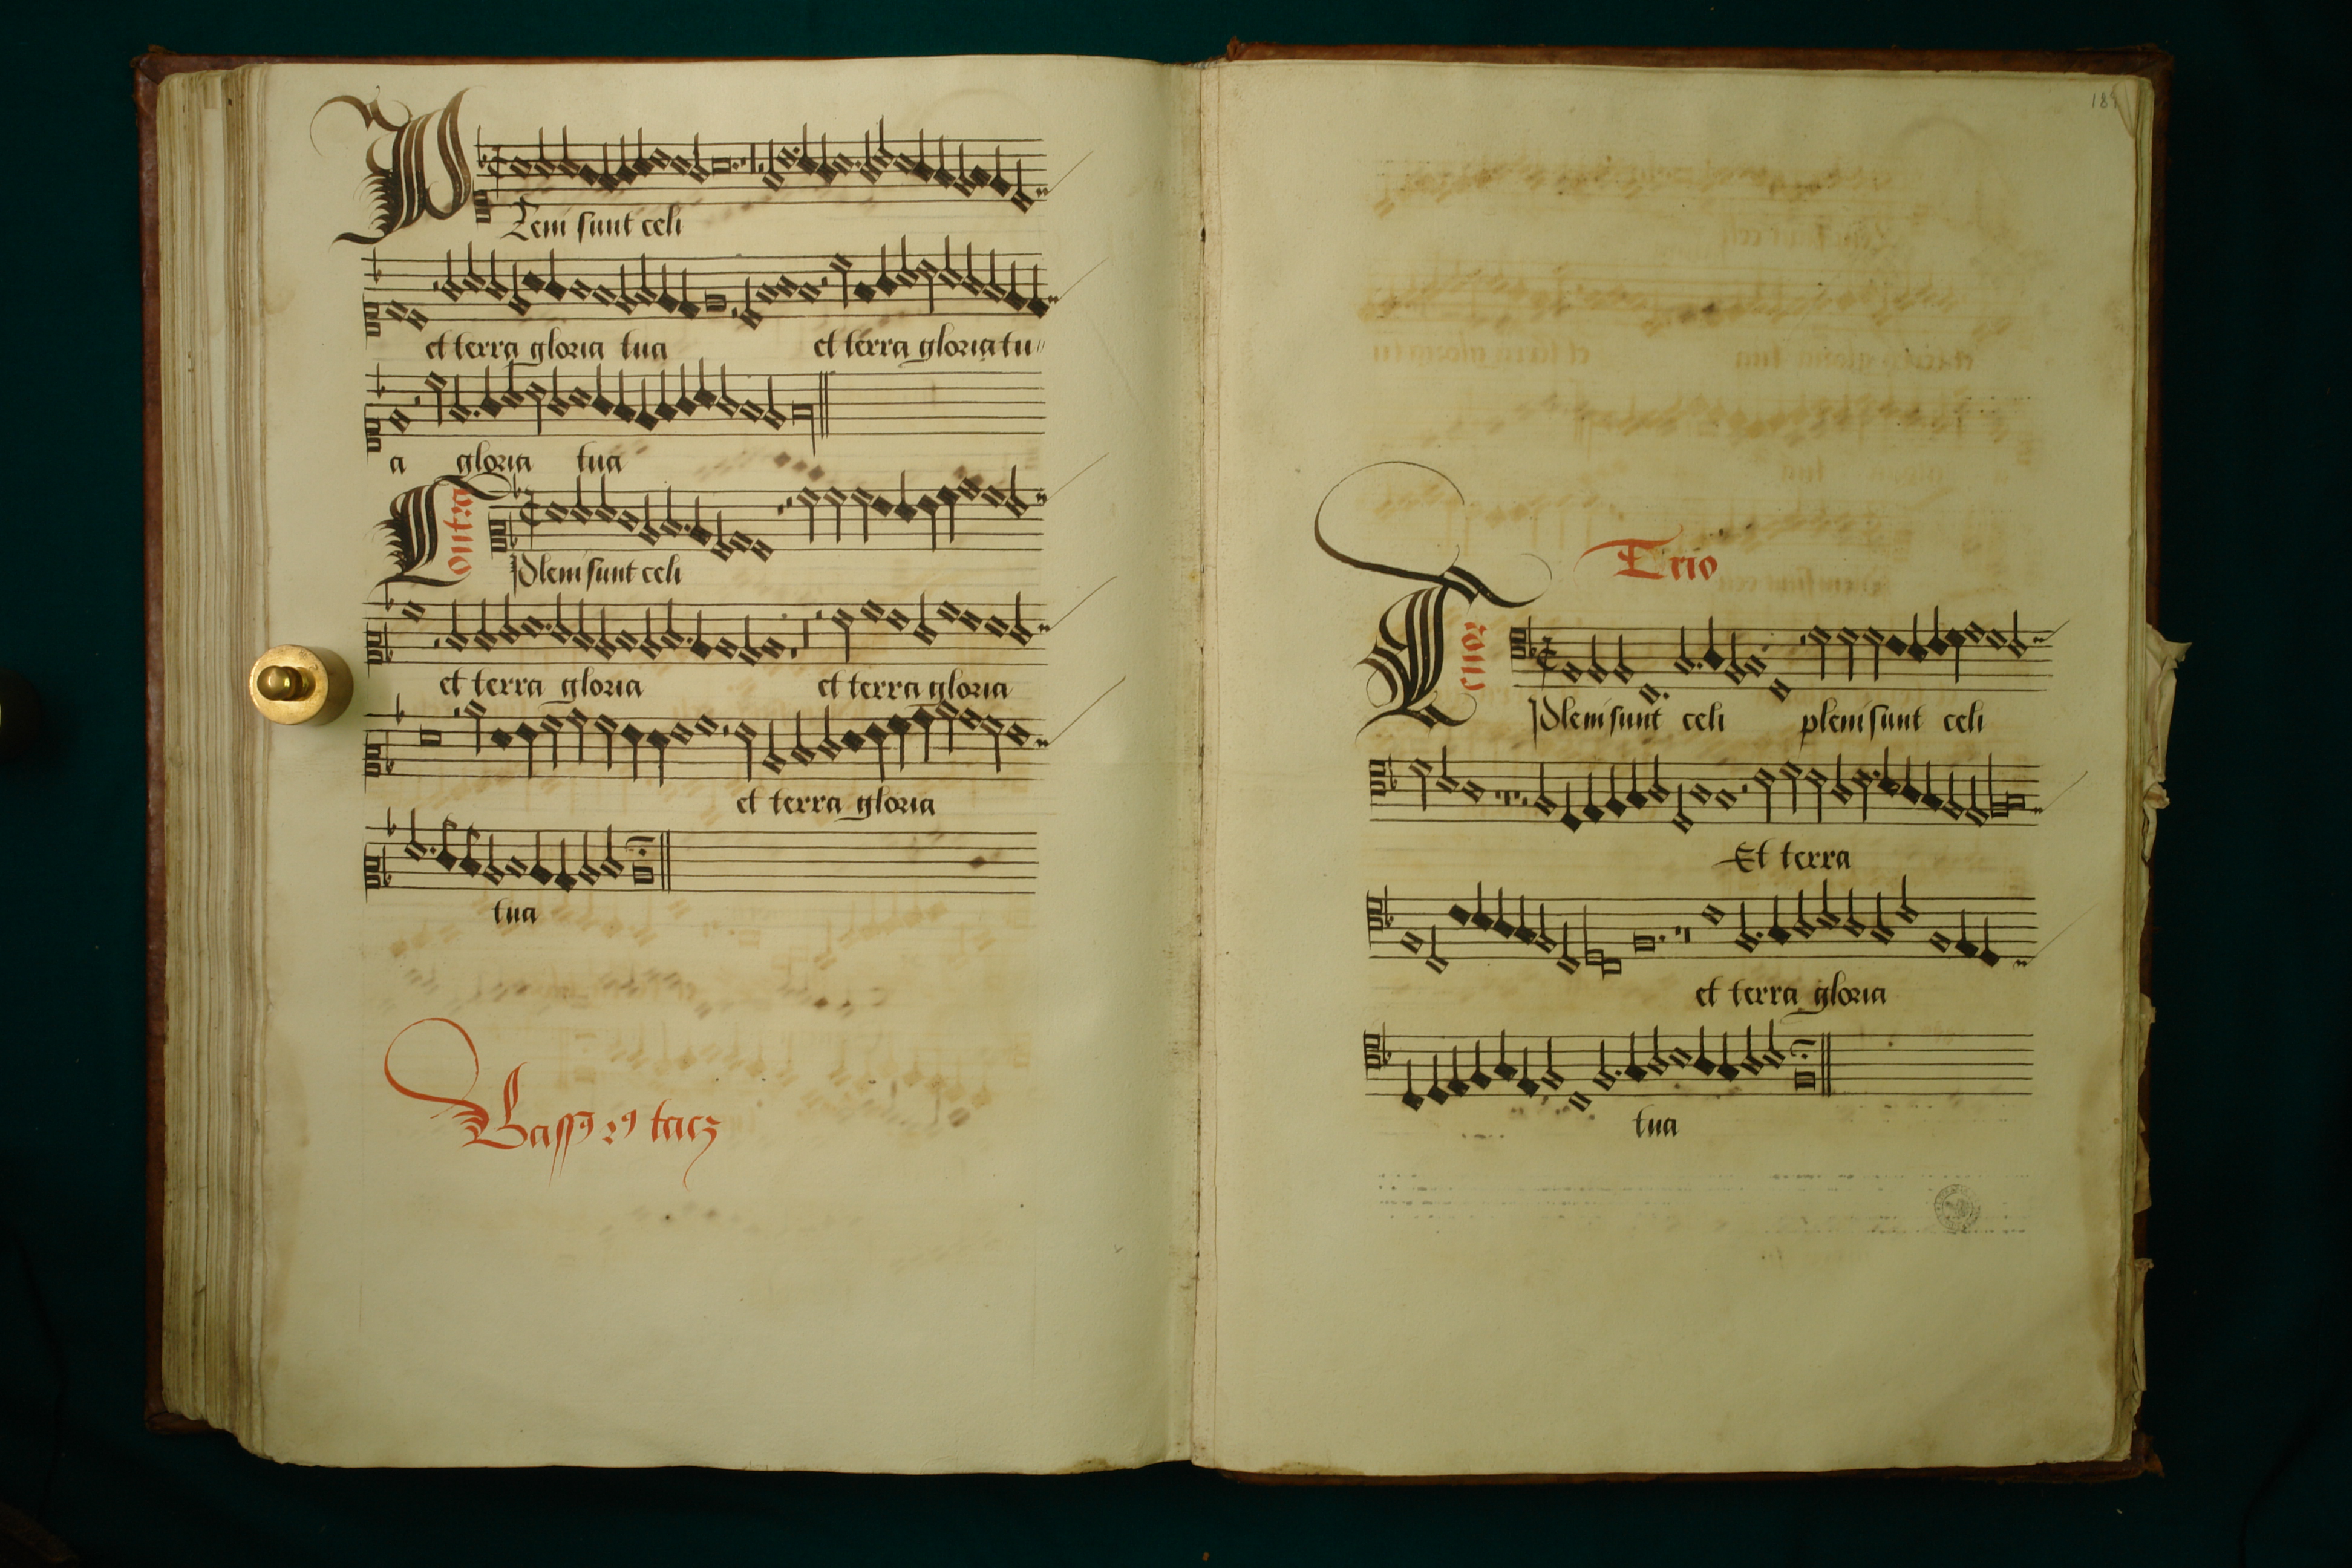 Pleni sunt celi
et terra gloria tua et terra gloria tu
a gloria tua
Contra
Pleni sunt celi
et terra gloria et terra gloria
et terra gloria
tua
189
Trio
Tenor
Pleni sunt celi pleni sunt celi
Et terra
et terra gloria
tua